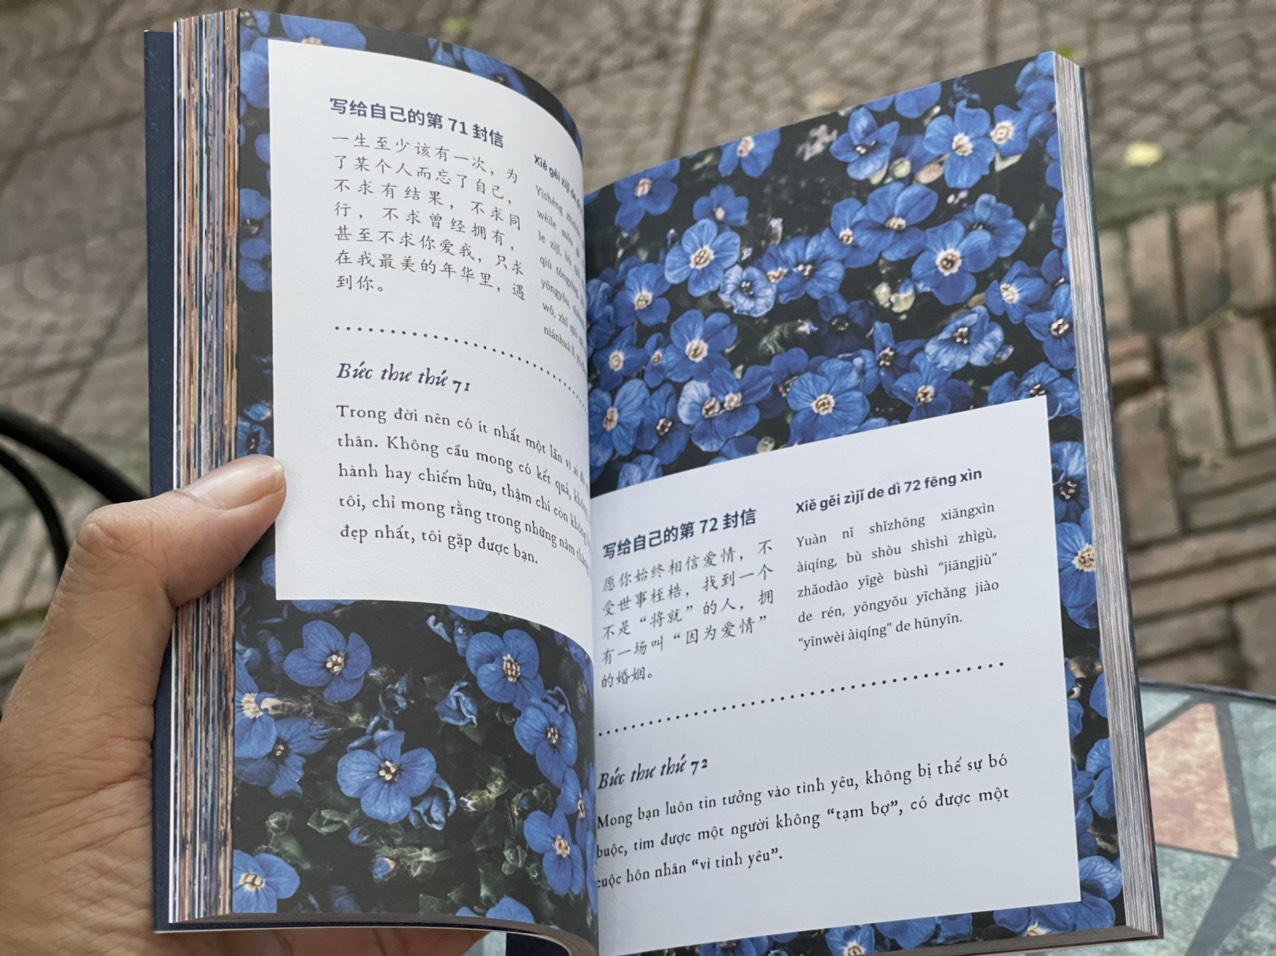 写给自己的第 71 封信
一生至少该有一次，为
了某个人而忘了自己，
不求有结果，不求同
行，不求曾经拥有，
甚至不求你爱我，只求
在我最美的年华里，遇
到你。
Xiě gěi zìjǐ de
Yīshēng
wèile mǒu
le zìjǐ, bù
qiú tóngxíng
yōngyǒu,
wǒ, zhǐ
niánhuá lǐ,
Bức thư thứ 71
Trong đời nên có ít nhất một lần vì ai
thân. Không cầu mong có kết quả,
hành hay chiếm hữu, thậm chí còn không
tôi, chỉ mong rằng trong những năm
đẹp nhất, tôi gặp được bạn.
写给自己的第 72 封信
愿你始终相信爱情，不
受世事桎梏，找到一个
不是“将就”的人，拥
有一场叫“因为爱情”
的婚姻。
Xiě gěi zìjǐ de dì 72 fēng xìn
Yuàn nǐ shǐzhōng xiāngxìn
àiqíng, bù shòu shìshì zhìgù,
zhǎodào yīgè bùshì “jiāngjiù”
de rén, yōngyǒu yīchǎng jiào
“yīnwèi àiqíng” de hūnyīn.
Bức thư thứ 72
Mong bạn luôn tin tưởng vào tình yêu, không bị thế sự bó
buộc, tìm được một người không “tạm bợ”, có được một
cuộc hôn nhân “vì tình yêu”.